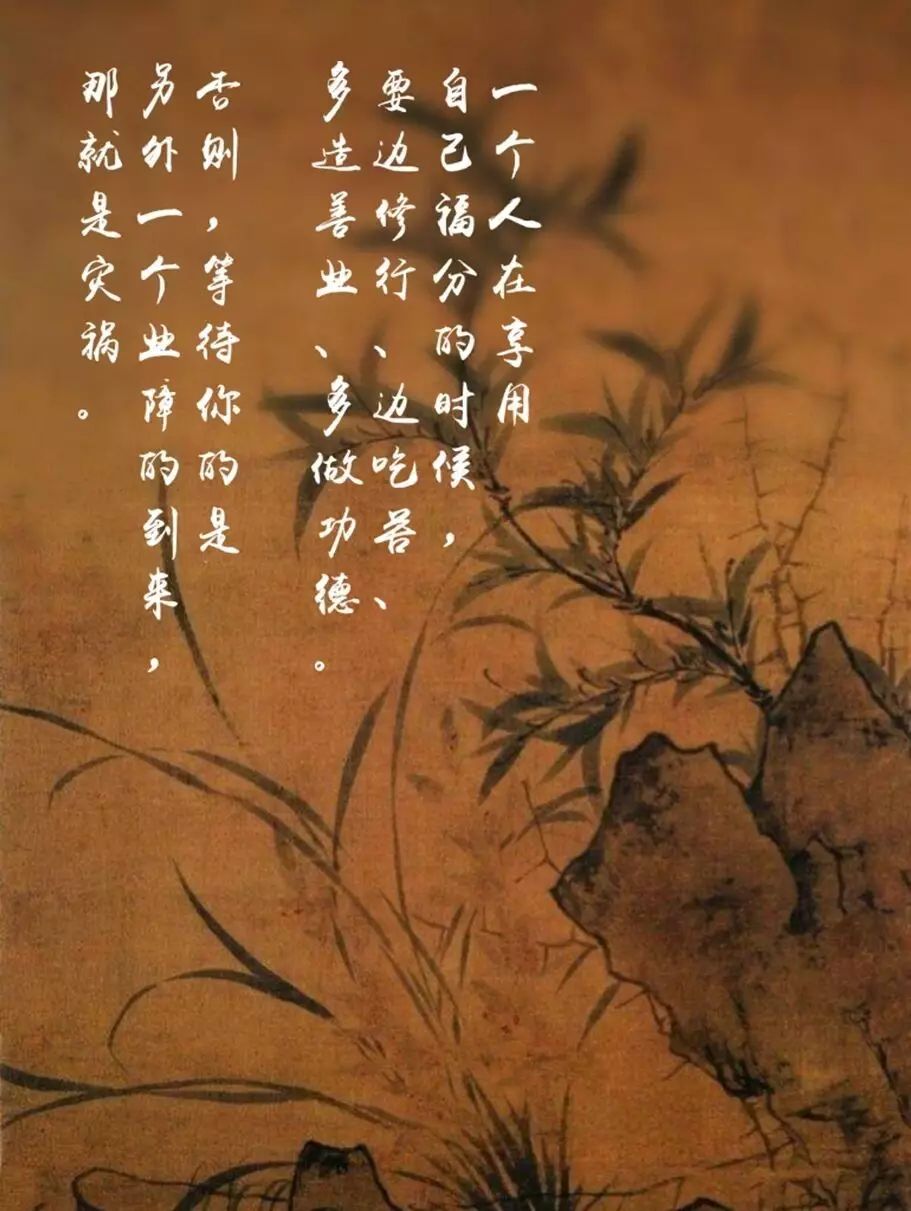 一个人在享用
自己福分的时候，
要边修行、边吃苦、
多造善业、多做功德。
否则，等待你的是
另外一个业障的到来，
那就是灾祸。